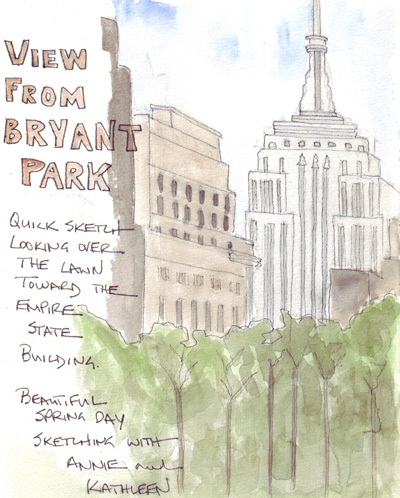 VIEW
FROM
BRYANT
PARK
QUICK SKETCH
LOOKING OVER
THE LAWN
TOWARD THE
EMPIRE
STATE
BUILDING.
BEAUTIFUL
SPRING DAY
SKETCHING WITH
ANNIE and
KATHLEEN